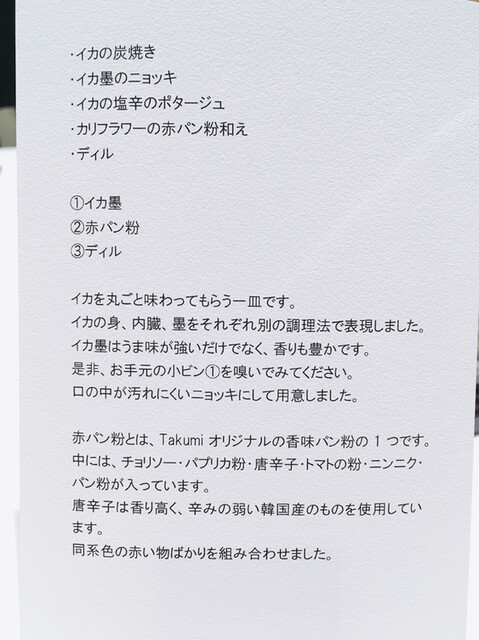 ・イカの炭焼き
・イカ墨のニョッキ
・イカの塩辛のポタージュ
・カリフラワーの赤パン粉和え
・ディル
①イカ墨
②赤パン粉
③ディル
イカを丸ごと味わってもらう一皿です。
イカの身、内臓、墨をそれぞれ別の調理法で表現しました。
イカ墨はうま味が強いだけでなく、香りも豊かです。
是非、お手元の小ビン①を嗅いでみてください。
口の中が汚れにくいニョッキにして用意しました。
赤パン粉とは、Takumiオリジナルの香味パン粉の1つです。
中には、チョリソー・パプリカ粉・唐辛子・トマトの粉・ニンニク・
パン粉が入っています。
唐辛子は香り高く、辛みの弱い韓国産のものを使用してい
ます。
同系色の赤い物ばかりを組み合わせました。